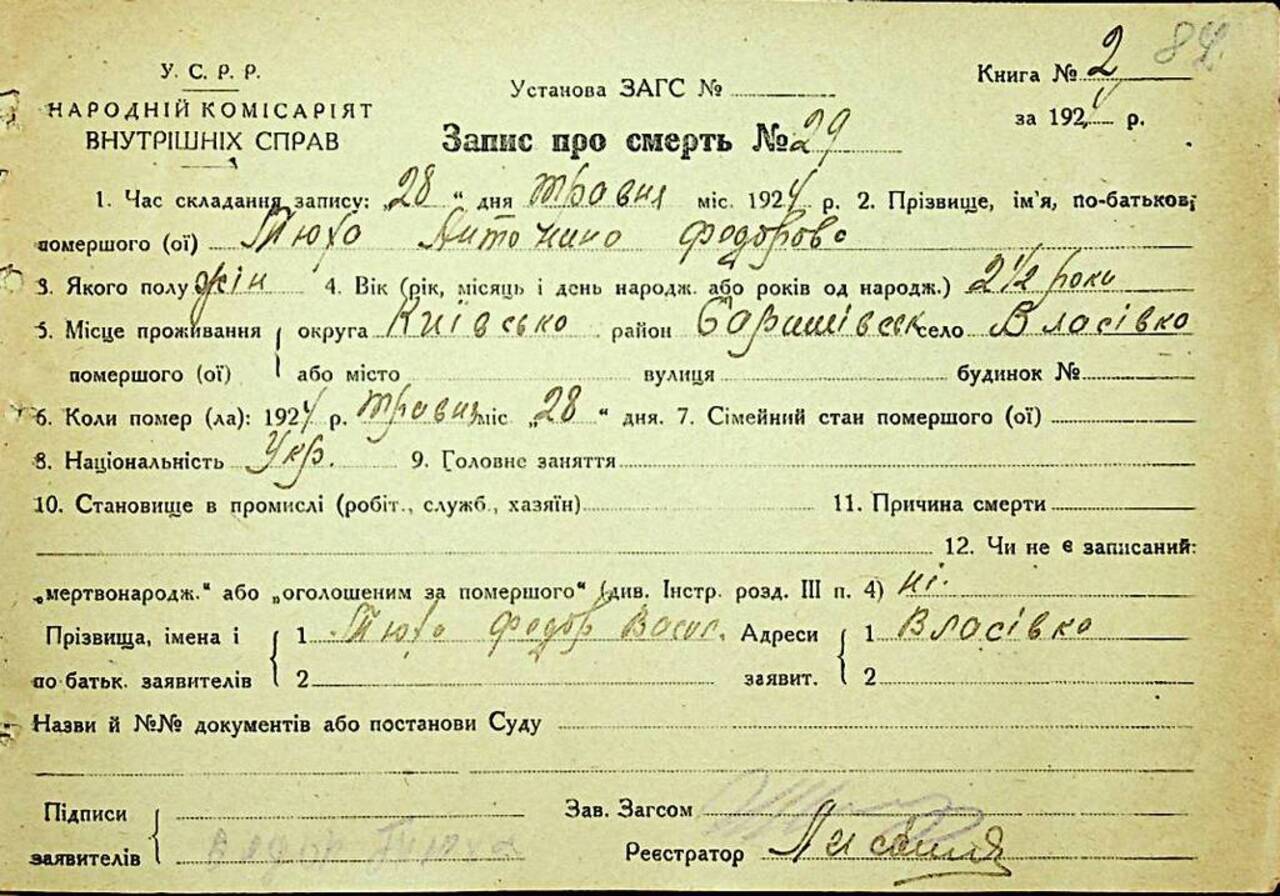 84.
У. С. Р. Р.
НАРОДНІЙ КОМІСАРІЯТ
ВНУТРІШНІХ СПРАВ
Установа ЗАГС №
Книга № 2
за 1924 р.
Запис про смерть № 29
1. Час складання запису: „28“ дня травня міс. 1924 р. 2. Прізвище, ім'я, по-батькові
помершого (ої) Тюха Антонина Федорова
3. Якого полу жін 4. Вік (рік, місяць і день народж. або років од народж.) 2 1/2 роки
5. Місце проживання округа Київсько район Баришівськ село Власівка
помершого (ої) або місто вулиця будинок №
6. Коли помер (ла): 1924 р. травня міс „28“ дня. 7. Сімейний стан помершого (ої)
8. Національність Укр. 9. Головне заняття
10. Становище в промислі (робіт., служб., хазяїн) 11. Причина смерти
12. Чи не є записаний:
„мертвонародж.“ або „оголошеним за помершого“ (див. Інстр. розд. III п. 4) ні.
Прізвища, імена і 1 Тюха Федор Васил. Адреси 1 Власівка
по батьк. заявителів 2 заявит. 2
Назви й №№ документів або постанови Суду
Підписи Зав. Загсом
заявителів Реєстратор